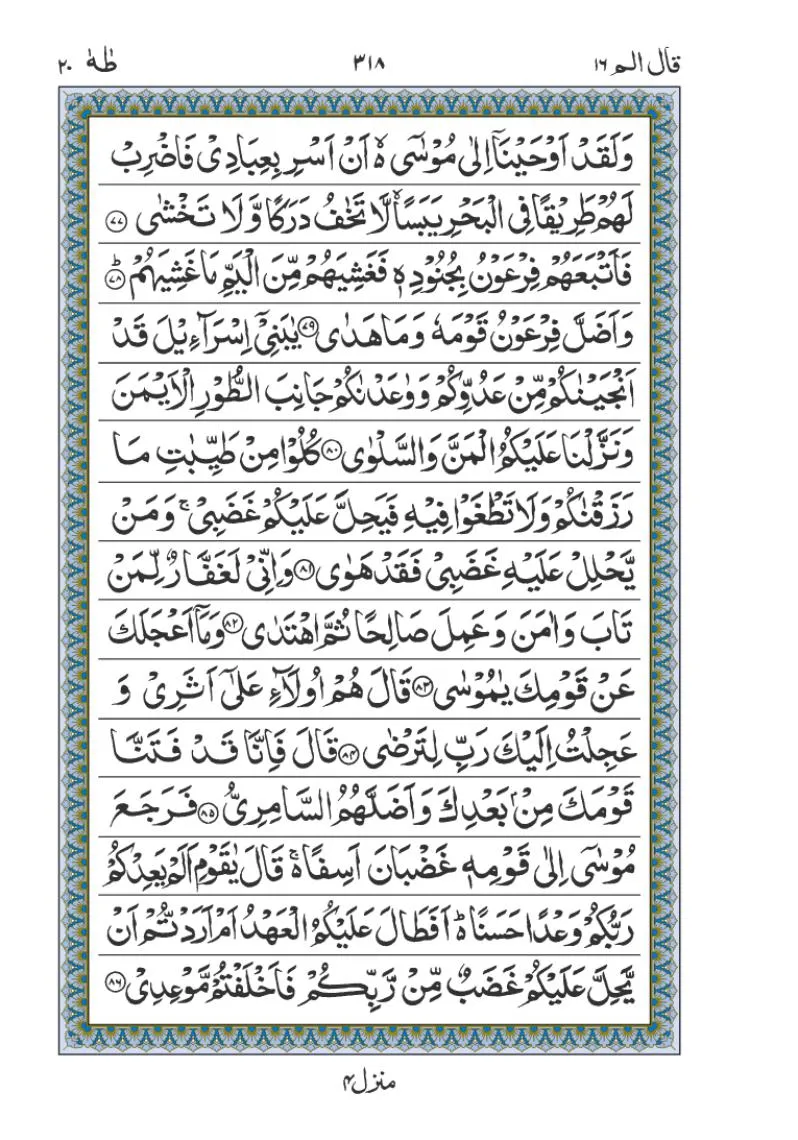 قال الم ١٦ ٣١٨ طٰهٰ ٢٠
وَلَقَدْ اَوْحَيْنَاۤ اِلٰى مُوْسٰۤى ۙ اَنْ اَسْرِ بِعِبَادِىْ فَاضْرِبْ
لَهُمْ طَرِيْقًا فِى الْبَحْرِ يَبَسًا ۙ لَّا تَخٰفُ دَرَكًا وَّ لَا تَخْشٰى ۝٧٧
فَاَتْبَعَهُمْ فِرْعَوْنُ بِجُنُوْدِهٖ فَغَشِيَهُمْ مِّنَ الْيَمِّ مَا غَشِيَهُمْ ۝٧٨ؕ
وَاَضَلَّ فِرْعَوْنُ قَوْمَهٗ وَمَا هَدٰى ۝٧٩ يٰبَنِىْۤ اِسْرَآءِيْلَ قَدْ
اَنْجَيْنٰكُمْ مِّنْ عَدُوِّكُمْ وَوٰعَدْنٰكُمْ جَانِبَ الطُّوْرِ الْاَيْمَنَ
وَنَزَّلْنَا عَلَيْكُمُ الْمَنَّ وَالسَّلْوٰى ۝٨٠ كُلُوْا مِنْ طَيِّبٰتِ مَا
رَزَقْنٰكُمْ وَلَا تَطْغَوْا فِيْهِ فَيَحِلَّ عَلَيْكُمْ غَضَبِىْ ۚ وَمَنْ
يَّحْلِلْ عَلَيْهِ غَضَبِىْ فَقَدْ هَوٰى ۝٨١ وَاِنِّىْ لَغَفَّارٌ لِّمَنْ
تَابَ وَاٰمَنَ وَعَمِلَ صَالِحًا ثُمَّ اهْتَدٰى ۝٨٢ وَمَاۤ اَعْجَلَكَ
عَنْ قَوْمِكَ يٰمُوْسٰى ۝٨٣ قَالَ هُمْ اُولَآءِ عَلٰٓى اَثَرِىْ وَ
عَجِلْتُ اِلَيْكَ رَبِّ لِتَرْضٰى ۝٨٤ قَالَ فَاِنَّا قَدْ فَتَنَّا
قَوْمَكَ مِنْۢ بَعْدِكَ وَاَضَلَّهُمُ السَّامِرِىُّ ۝٨٥ فَرَجَعَ
مُوْسٰۤى اِلٰى قَوْمِهٖ غَضْبَانَ اَسِفًا ۚ۬ قَالَ يٰقَوْمِ اَلَمْ يَعِدْكُمْ
رَبُّكُمْ وَعْدًا حَسَنًا ؕ۬ اَفَطَالَ عَلَيْكُمُ الْعَهْدُ اَمْ اَرَدْتُّمْ اَنْ
يَّحِلَّ عَلَيْكُمْ غَضَبٌ مِّنْ رَّبِّكُمْ فَاَخْلَفْتُمْ مَّوْعِدِىْ ۝٨٦
منزل ۴